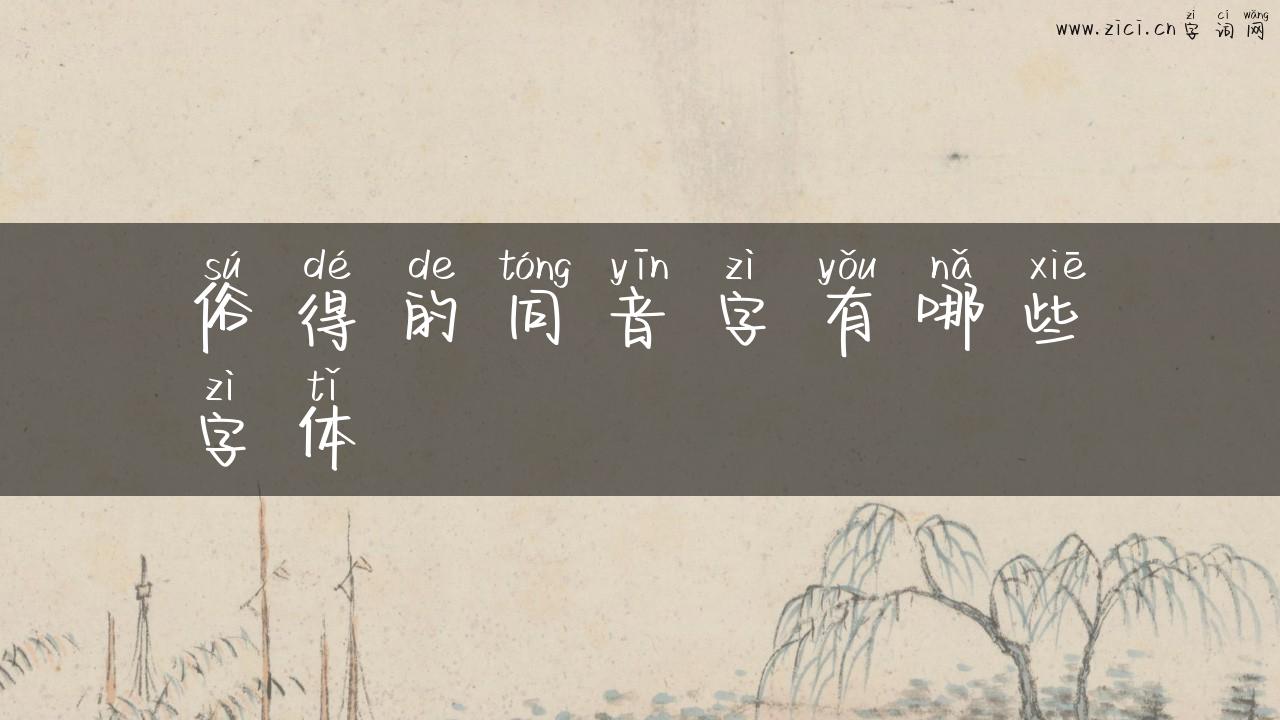 zì cí wǎng
www.zici.cn字词网
sú dé de tóng yīn zì yǒu nǎ xiē
俗得的同音字有哪些
zì tǐ
字体